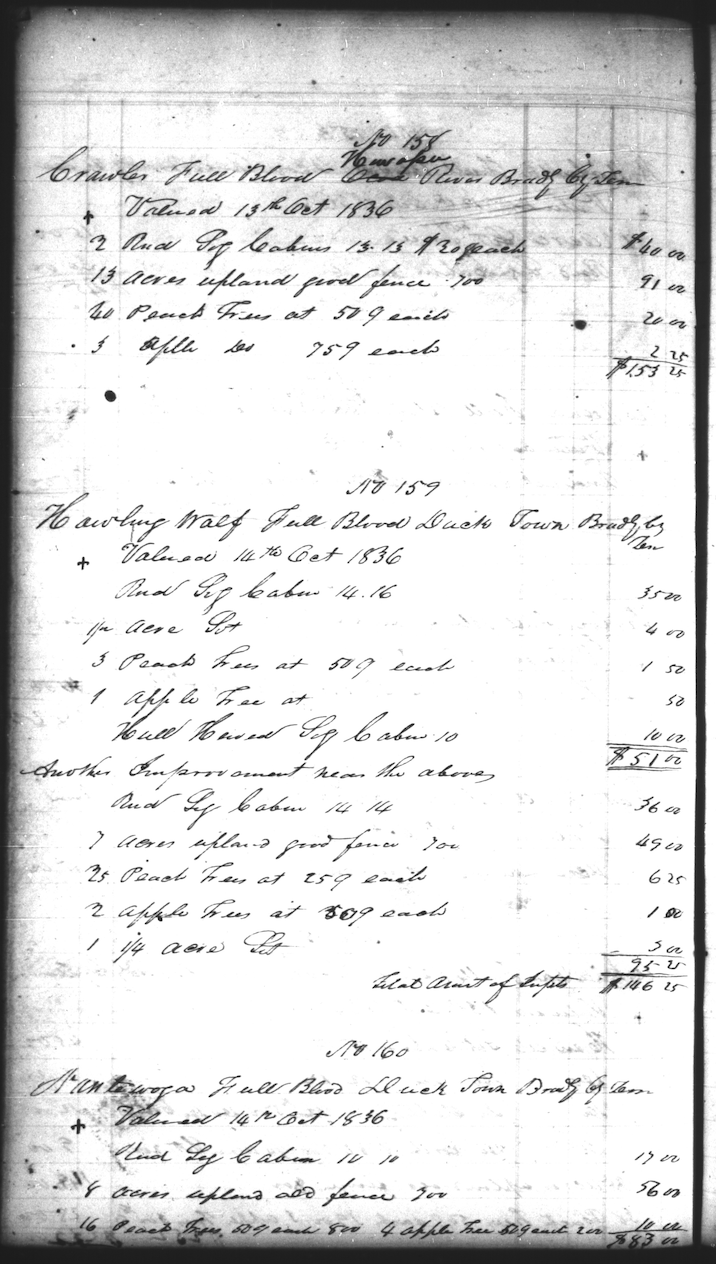 No 158
Hiwassee
Crawler Full Blood River Bradly Cy Ten
Valued 13th Oct 1836
2 Rnd Log Cabins 13.13 $20 each $40 00
13 acres upland good fence 700 91 00
40 Peach Trees at 50¢ each 20 00
3 Aple do 75¢ each 2 25
$153 25
No 159
Howling Wolf Full Blood Duck Town Bradly Cy
Ten
Valued 14th Oct 1836
Rnd Log Cabin 14.16 35 00
1/2 acre Lot 4 00
3 Peach Trees at 50¢ each 1 50
1 Apple Tree at 50
Hull Hewed Log Cabin 10 10 00
$51 00
Another Improvement near the above
Rnd Log Cabin 14 14 36 00
7 acres upland good fence 700 49 00
25 Peach Trees at 25¢ each 6 25
2 Apple Trees at 50¢ each 1 00
1 1/4 acre Lot 3 00
95 25
Total Amt of Impts $146 25
No 160
Full Blood Duck Town Bradly Cy Tenn
Valued 14th Oct 1836
Rnd Log Cabin 10 10 17 00
8 acres upland old fence 700 56 00
16 Peach Trees 50¢ each 800 4 apple Tree 50¢ each 200 10 00
$83 00